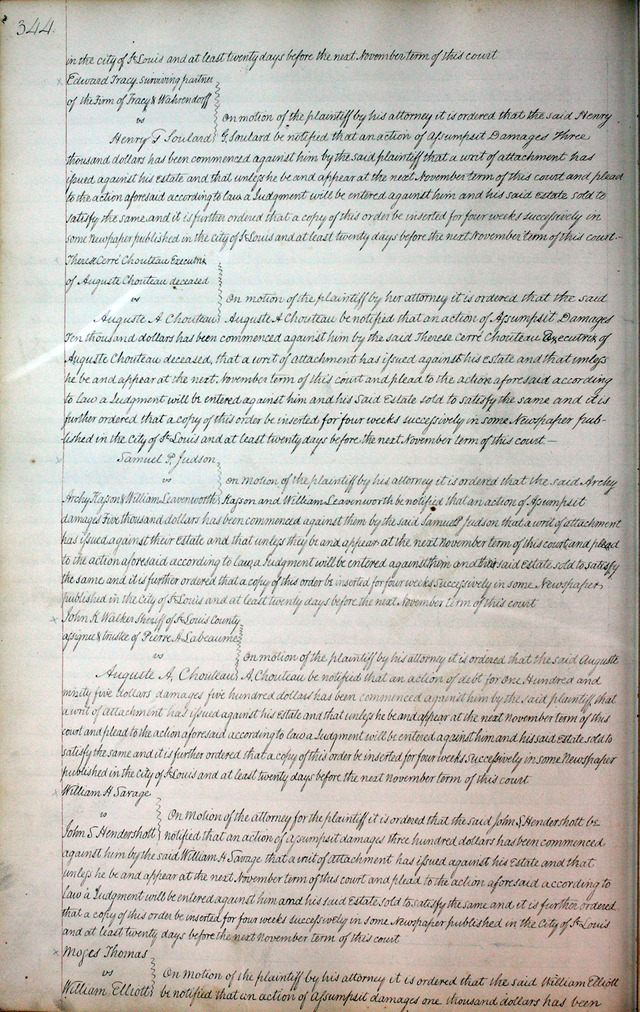 344.
in the city of St Louis and at least twenty days before the next November term of this court
Edward Tracy, surviving partner
of the Firm of Tracy & Wahrendorff
vs On motion of the plaintiff by his attorney it is ordered that the said Henry
Henry G Soulard G Soulard be notified that an action of Assumpsit Damages Three
thousand dollars has been commenced against him by the said plaintiff that a writ of attachment has
issued against his Estate and that unless he be and appear at the next November term of this court and plead
to the action aforesaid according to law a Judgment will be entered against him and his said Estate sold to
satisfy the same and it is further ordered that a copy of this order be inserted for four weeks successively in
some Newspaper published in the City of St Louis and at least twenty days before the next November term of this court.—
Therese Cerré Chouteau Executrix
of Auguste Chouteau deceased
vs On motion of the plaintiff by her attorney it is ordered that the said
Auguste A Chouteau Auguste A Chouteau be notified that an action of Assumpsit Damages
Ten thousand dollars has been commenced against him by the said Therese Cerré Chouteau Executrix of
Auguste Chouteau deceased, that a writ of attachment has issued against his Estate and that unless
he be and appear at the next November term of this court and plead to the action aforesaid according
to law a Judgment will be entered against him and his Said Estate sold to satisfy the same and it is
further ordered that a copy of this order be inserted for four weeks successively in some Newspaper pub-
lished in the City of St Louis and at least twenty days before the next November term of this court.—
Samuel P. Judson
vs On motion of the plaintiff by his attorney it is ordered that the said Archy
Archy Kasson & William Leavenworth Kasson and William Leavenworth be notified that an action of Assumpsit
damages Five thousand dollars has been commenced against them by the said Samuel Judson that a writ of attachment
has issued against their Estate and that unless they be and appear at the next November term of this court and plead
to the action aforesaid according to law a Judgment will be entered against them and their said Estate sold to satisfy
the same and it is further ordered that a copy of this order be inserted for four weeks Successively in some Newspaper,
published in the City of St Louis and at least twenty days before the next November term of this court
John K Walker Sheriff of St Louis County
assignee & trustee of Pierre A Labeaume
vs On motion of the plaintiff by his attorney it is ordered that the said Auguste
Auguste A. Chouteau A. Chouteau be notified that an action of debt for one Hundred and
ninity five Dollars damages five hundred dollars has been commenced against him by the said plaintiff, that
a writ of attachment has issued against his Estate and that unless he be and appear at the next November term of this
court and plead to the action aforesaid according to law a Judgment will be entered against him and his said Estate sold to
satisfy the same and it is further ordered that a copy of this order be inserted for four weeks Successively in some Newspaper
published in the city of St Louis and at least twenty days before the next November term of this court
William H Savage
vs On Motion of the attorney for the plaintiff it is ordered that the said John S Hendershott be
John S Hendershott notified that an action of assumpsit damages three hundred dollars has been commenced
against him by the said William H Savage that a writ of attachment has issued against his Estate and that
unless he be and appear at the next November term of this court and plead to the action aforesaid according to
law a Judgment will be entered against him and his said Estate sold to satisfy the same and it is further ordered
that a copy of this order be inserted for four weeks successively in some Newspaper published in the City of St Louis
and at least twenty days before the next November term of this court
Moses Thomas
vs On motion of the plaintiff by his attorney it is ordered that the said William Elliott
William Elliott be notified that an action of Assumpsit damages one thousand dollars has been